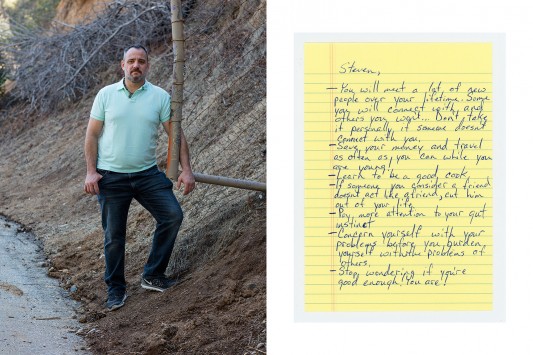 Steven,
- You will meet a lot of new
people over your lifetime. Some
you will connect with and
others you wont... Don't take
it personally if someone doesn't
connect with you.
- Save your money and travel
as often as you can while you
are young!
- Learn to be a good cook.
- If someone you consider a friend
doesn't act like a friend, cut him
out of your life
- Pay more attention to your gut
instinct
- Concern yourself with your
problems before you burden
yourself with the problems of
others.
- Stop wondering if you're
good enough! You are!